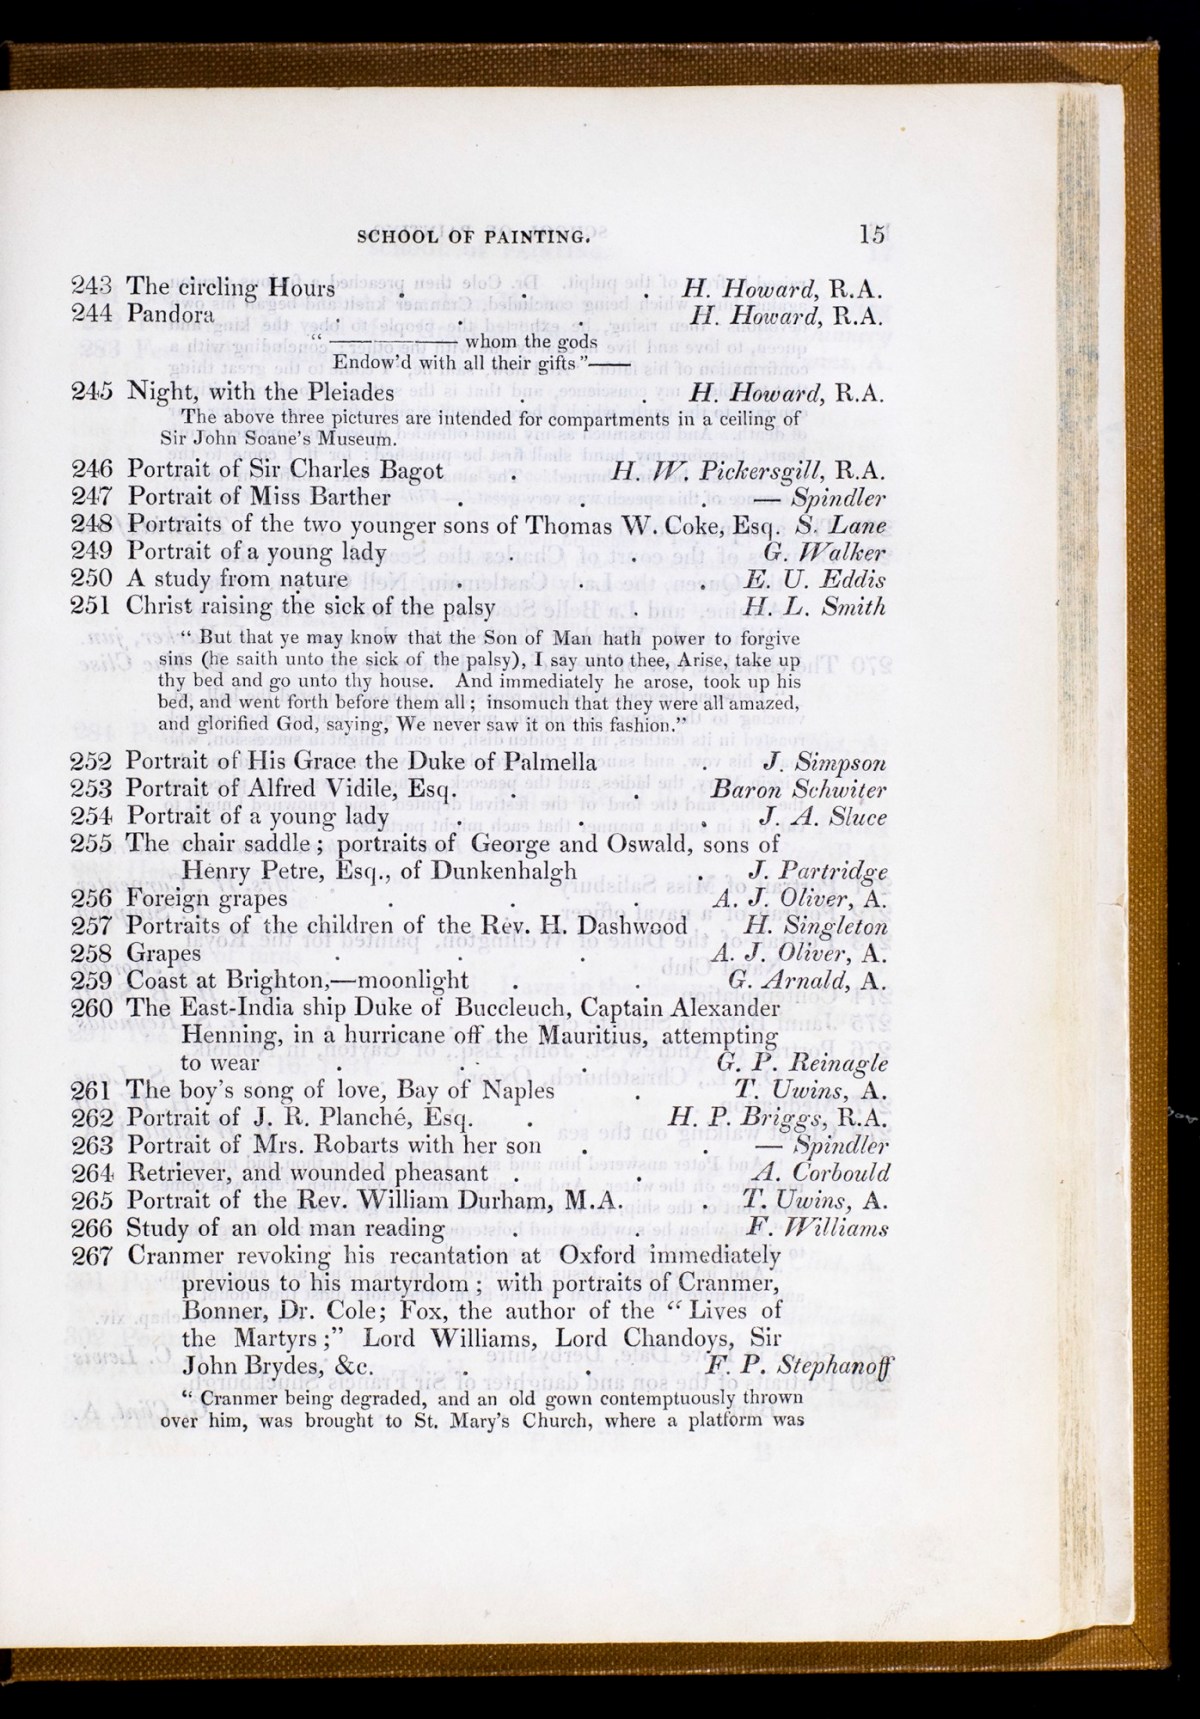 SCHOOL OF PAINTING. 15
243 The circling Hours . . . H. Howard, R.A.
244 Pandora . . . H. Howard, R.A.
“ ——————— whom the gods
Endow’d with all their gifts ”——
245 Night, with the Pleiades . . H. Howard, R.A.
The above three pictures are intended for compartments in a ceiling of
Sir John Soane’s Museum.
246 Portrait of Sir Charles Bagot . H. W. Pickersgill, R.A.
247 Portrait of Miss Barther . . . — Spindler
248 Portraits of the two younger sons of Thomas W. Coke, Esq. S. Lane
249 Portrait of a young lady . . G. Walker
250 A study from nature . . . E. U. Eddis
251 Christ raising the sick of the palsy . . H. L. Smith
“ But that ye may know that the Son of Man hath power to forgive
sins (he saith unto the sick of the palsy), I say unto thee, Arise, take up
thy bed and go unto thy house. And immediately he arose, took up his
bed, and went forth before them all ; insomuch that they were all amazed,
and glorified God, saying, We never saw it on this fashion.”
252 Portrait of His Grace the Duke of Palmella . J. Simpson
253 Portrait of Alfred Vidile, Esq. . . Baron Schwiter
254 Portrait of a young lady . . . J. A. Sluce
255 The chair saddle ; portraits of George and Oswald, sons of
Henry Petre, Esq., of Dunkenhalgh . J. Partridge
256 Foreign grapes . . . A. J. Oliver, A.
257 Portraits of the children of the Rev. H. Dashwood H. Singleton
258 Grapes . . . A. J. Oliver, A.
259 Coast at Brighton,—moonlight . . G. Arnald, A.
260 The East-India ship Duke of Buccleuch, Captain Alexander
Henning, in a hurricane off the Mauritius, attempting
to wear . . . G. P. Reinagle
261 The boy’s song of love, Bay of Naples . T. Uwins, A.
262 Portrait of J. R. Planché, Esq. . H. P. Briggs, R.A.
263 Portrait of Mrs. Robarts with her son . . — Spindler
264 Retriever, and wounded pheasant . . A. Corbould
265 Portrait of the Rev. William Durham, M.A. . T. Uwins, A.
266 Study of an old man reading . . F. Williams
267 Cranmer revoking his recantation at Oxford immediately
previous to his martyrdom ; with portraits of Cranmer,
Bonner, Dr. Cole; Fox, the author of the “ Lives of
the Martyrs ;” Lord Williams, Lord Chandoys, Sir
John Brydes, &c. . . F. P. Stephanoff
“ Cranmer being degraded, and an old gown contemptuously thrown
over him, was brought to St. Mary’s Church, where a platform was